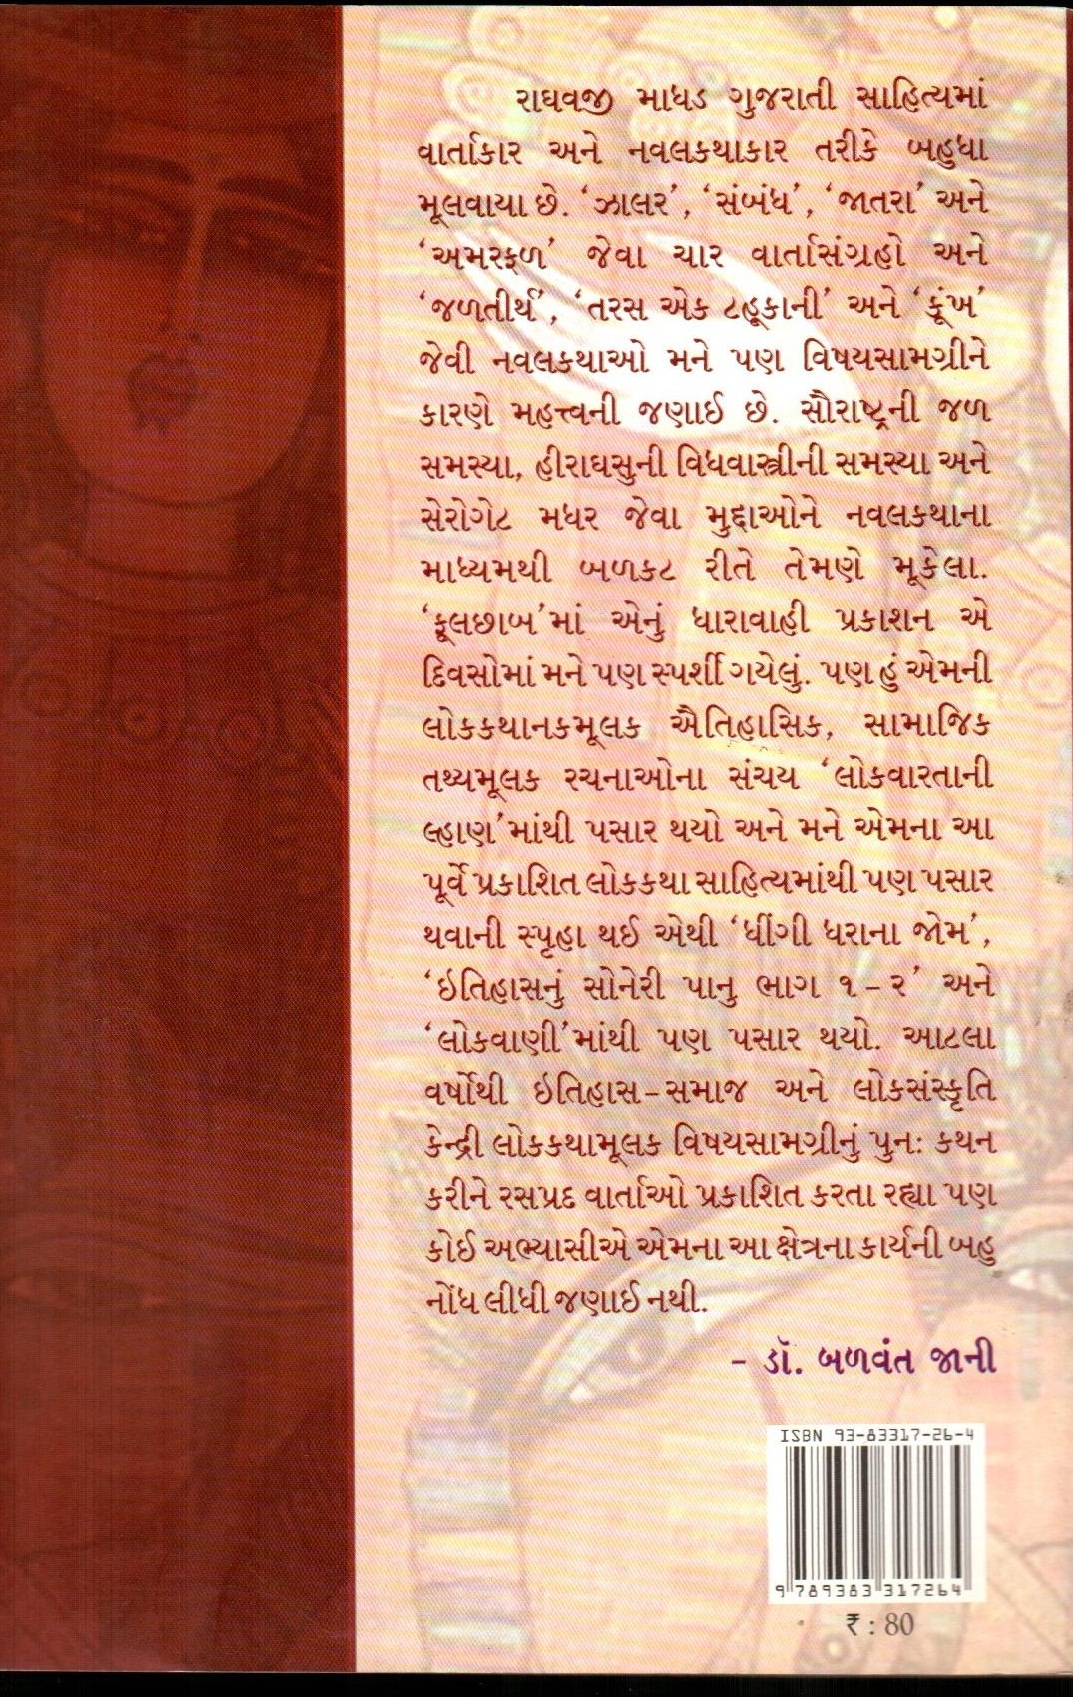 રાઘવજી માધડ ગુજરાતી સાહિત્યમાં
વાર્તાકાર અને નવલકથાકાર તરીકે બહુધા
મૂલવાયા છે. ‘ઝાલર’, ‘સંબંધ’, ‘જાતરા’ અને
‘અમરફળ’ જેવા ચાર વાર્તાસંગ્રહો અને
‘જળતીર્થ’, ‘તરસ એક ટહૂકાની’ અને ‘કૂંખ’
જેવી નવલકથાઓ મને પણ વિષયસામગ્રીને
કારણે મહત્ત્વની જણાઈ છે. સૌરાષ્ટ્રની જળ
સમસ્યા, હીરાઘસુની વિધવાસ્ત્રીની સમસ્યા અને
સેરોગેટ મધર જેવા મુદ્દાઓને નવલકથાના
માધ્યમથી બળકટ રીતે તેમણે મૂકેલા.
‘ફૂલછાબ’માં એનું ધારાવાહી પ્રકાશન એ
દિવસોમાં મને પણ સ્પર્શી ગયેલું. પણ હું એમની
લોકકથાનકમૂલક ઐતિહાસિક, સામાજિક
તથ્યમૂલક રચનાઓના સંચય ‘લોકવારતાની
લ્હાણ’માંથી પસાર થયો અને મને એમના આ
પૂર્વે પ્રકાશિત લોકકથા સાહિત્યમાંથી પણ પસાર
થવાની સ્પૃહા થઈ એથી ‘ધીંગી ધરાના જોમ’,
‘ઇતિહાસનું સોનેરી પાનુ ભાગ ૧ – ૨’ અને
‘લોકવાણી’માંથી પણ પસાર થયો. આટલા
વર્ષોથી ઇતિહાસ–સમાજ અને લોકસંસ્કૃતિ
કેન્દ્રી લોકકથામૂલક વિષયસામગ્રીનું પુન: કથન
કરીને રસપ્રદ વાર્તાઓ પ્રકાશિત કરતા રહ્યા પણ
કોઈ અભ્યાસીએ એમના આ ક્ષેત્રના કાર્યની બહુ
નોંધ લીધી જણાઈ નથી.
– ડૉ. બળવંત જાની
ISBN 93-83317-26-4
9 789383 317264
₹ : 80